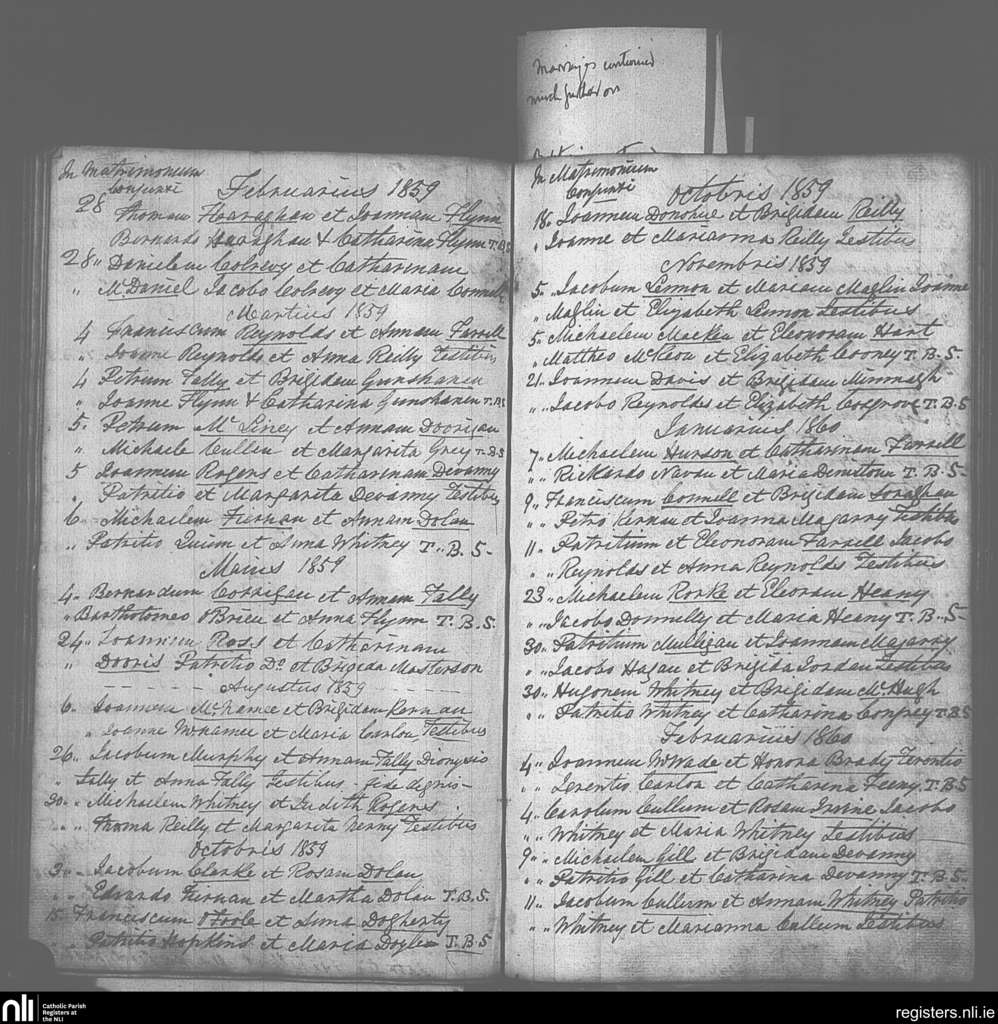 marriages continued
much further on
In Matrimonium
Conjunxi
Februarius 1859
28 Thomam Haraghan et Joannam Flynn
Bernardo Haraghan & Catharina Flynn T.B.S
28 " Danielem Colrevy et Catharinam
" McDaniel Jacobo Colrevy et Maria Connell
Martius 1859
4 Franciscum Reynolds et Annam Farrell
" Joanne Reynolds et Anna Reilly Testibus
4 Petrum Tally et Brigidam Gunshanan
" Joanne Flynn & Catharina Gunshanan T.B.S
5 " Petrum Mc Liney et Annam Doorigan
" Michaele Cullen et Margarita Grey T.B.S
5 Joannem Rogers et Catharinam Devanny
" Patritio et Margarita Devanny Testibus
6 " Michaelem Fiernan et Annam Dolan
" Patritio Quinn et Anna Whitney T.. B. S-
Maius 1859
4 " Bernardum Corrigan et Annam Tally
" Bartholomeo O'Brien et Anna Flynn T.B.S.
24 " Joannem Ross et Catharinam
" Dooris Patritio Do. et Brigida Masterson
Augustus 1859
6 " Joannem McNamee et Brigidam Kernan
" Joanne McNamee et Maria Carlon Testibus
26 " Jacobum Murphy et Annam Tally Dionysio
" Tally et Anna Tally Testibus - fide dignis -
30 " " Michaelem Whitney et Judith Rogers
" " Thoma Reilly et Margarita Nenny Testibus
Octobris 1859
3 " " Jacobum Clarke et Rosam Dolan
" " Edvardo Fiernan et Martha Dolan T.B.S.
15 " Franciscum O'Toole et Anna Dogherty
" Patritio Hopkins et Maria Doyle T.B.S
In Matrimonium
Conjunxi
Octobris 1859
18 " Joannem Donohue et Brigidam Reilly
" Joanne et Marianna Reilly Testibus
Novembris 1859
5 " Jacobum Lemon et Mariam Maglin Joanne
" Maglin et Elizabeth Lemon Testibus
5 " Michaelem Macken et Eleonoram Hart
" Mattheo McKeou et Elizabeth Cooney T.B.S.
21 " Joannem Davis et Brigidam Mimnagh
" " Jacobo Reynolds et Elizabeth Cosgrove T.B.S
Januarius 1860
7 " Michaelem Hurson et Catharinam Farrell
" " Rickardo Navan et Maria T.B.S-
9 " Franciscum Connell et Brigidam Soraghan
" " Petro Kernan et Joanna Magarry Testibus
11 " Patritium et Eleonoram Farrell Jacobo
" " Reynolds et Anna Reynolds Testibus
23 " Michaelem Rorke et Eleoram Heany
" " Jacobo Donnelly et Maria Heany T.B.S-
30 " Patritium Mulligan et Joannam Magarry
" " Jacobo Hagan et Brigida Jordan Testibus
30 " Hugonem Whitney et Brigidam McHugh
" " Patritio Whitney et Catharina Conprey T.B.S
Februarius 1860
4 " Joannem McWade et Honora Brady Terentio
" " Terentio Carlon et Catharina Feeny T.B.S
4 " Carolum Cullum et Rosam Irvine Jacobo
" " Whitney et Maria Whitney Testibus
9 " " Michaelem Gill et Brigidam Devanny
" " Patritio Gill et Catharina Devanny T.B.S-
11 " Jacobum Cullum et Annam Whitney Patritio
" " Whitney et Marianna Cullum Testibus
nli
Catholic Parish
Registers at
the NLI
registers.nli.ie